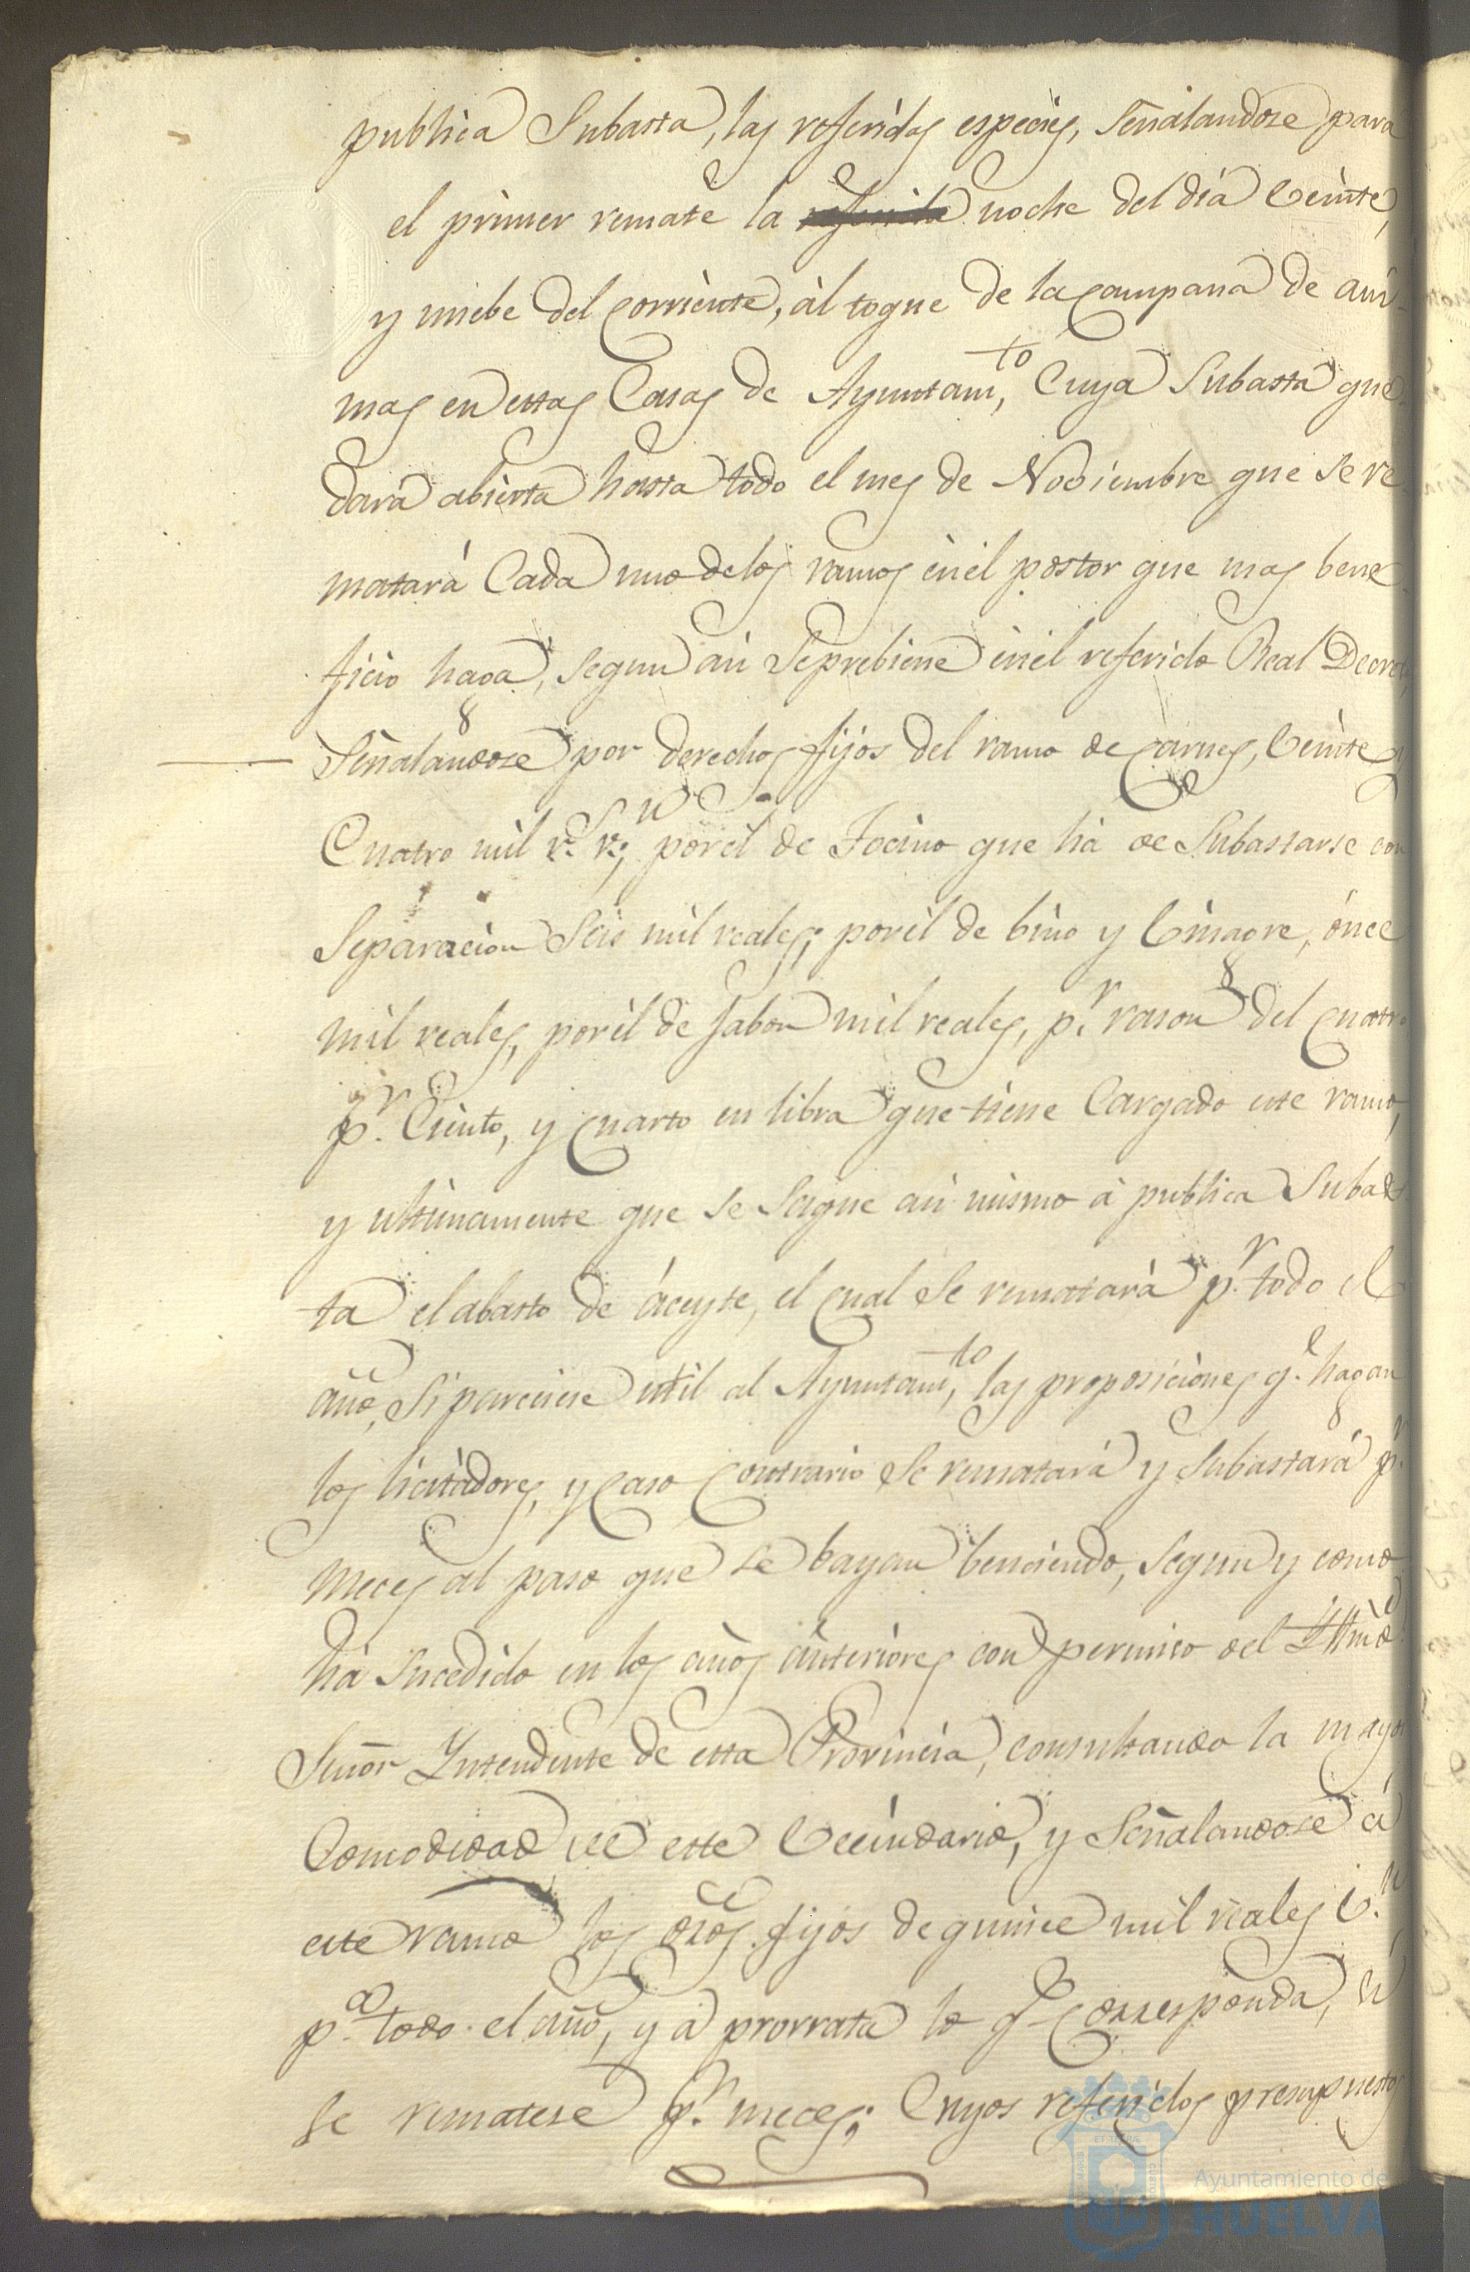 publica Subasta, las referidas especies, señalandose para
el primer remate la referida noche del dia beinte,
y nuebe del corriente, ál toque de la Campana de ani-
mas en estas Casas de Ayuntam.to, Cuya Subasta que-
dará abierta hasta todo el mes de Nobiembre que se re
matará Cada uno de los ramos en èl postor que mas bene
ficio haga, segun asi se prebiene en èl referido Real Decreto,
Señalandose por derechos fijos del ramo de Carnes, beinte y
Cuatro mil r.s v.n; por èl de Tocino que há de Subastarse con
Separacion Seis mil reales; por èl de bino y binagre, ónce
mil reales, por èl de Jabon mil reales, p.r rason del cuatro
p.r Ciento, y cuarto en libra que tiene Cargado este ramo,
y ultimamente que se saque asi mismo á publica Subas
ta el abasto de áceyte, el cual se rematará p.r todo el
año, si pareciese util al Ayuntam.to, las proposiciones q.e hagan
los licitadores, y caso contrario se rematará y Subastará p.r
meces al paso que se bayan benciendo, segun y como
há sucedido en los años anteriores con permiso del Yltmo
Señor Yntendente de esta Provincia, consultando la mayor
Comodidad de este becindario, y señalandose á
este ramo los dros. fijos de quince mil reales v.n
p.a todo el año, y á prorrata lo q.e Corresponda, si
se rematase p.r meces; Cuyos referidos presupuestos
Ayuntamiento de
HUELVA